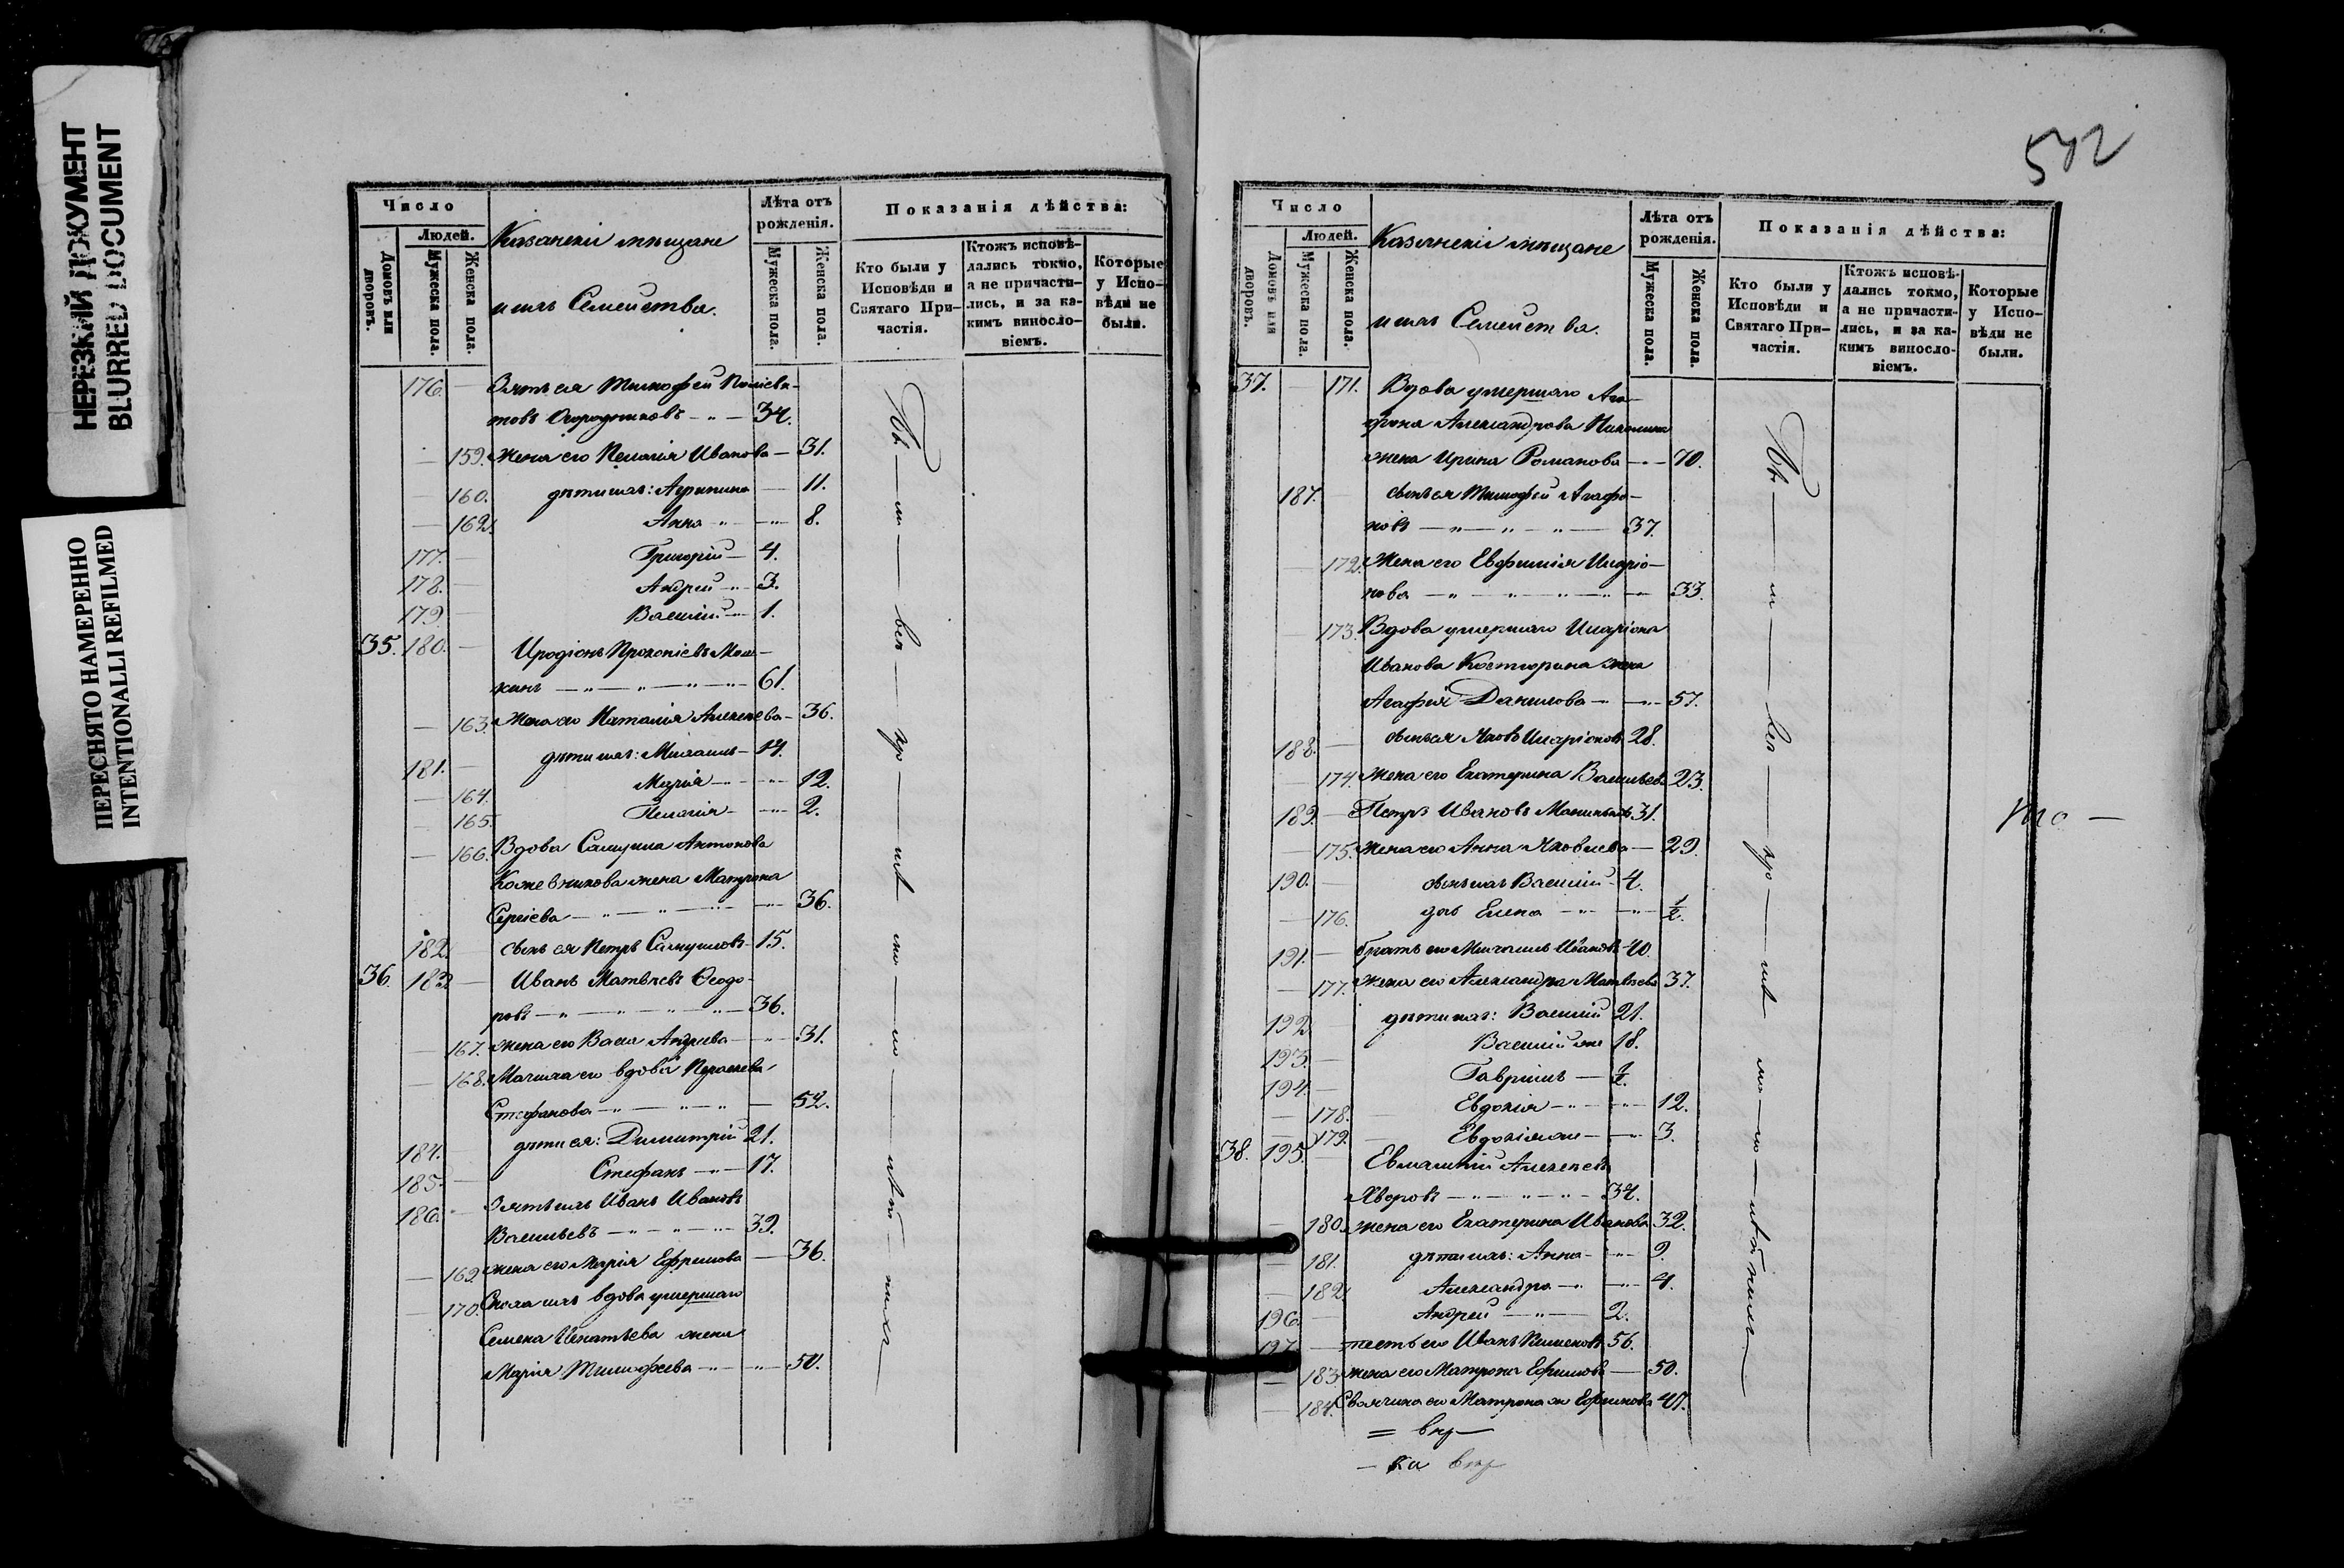 НЕРЕЗКИЙ ДОКУМЕНТ
BLURRED DOCUMENT
ПЕРЕСНЯТО НАМЕРЕННО
INTENTIONALLI REFILMED
Число
Людей.
Домовъ или дворовъ.
Мужеска пола.
Женска пола.
Казанскіе мѣщане
и ихъ Семейства.
Лѣта отъ рожденія.
Мужеска пола.
Женска пола.
Показанія дѣйства:
Кто были у Исповѣди и Святаго При-частія.
Ктожъ исповѣ-дались токмо, а не причасти-лись, и за ка-кимъ винословіемъ.
Которые у Испо-вѣди не были.
176. Зять ея Тимофей
Огородниковъ 34.
159. жена его Пелагія Иванова 31.
160. дѣти ихъ: Агрипина 11.
162. Анна 8.
177. Григорій 4.
178. Андрей 3.
179. Василій 1.
35. 180. Иродіонъ Прокопіевъ
61.
163. жена его Наталія Алексѣева 36.
181. дѣти ихъ: Михаилъ 14.
164. Марія 12.
165. Пелагія 2.
166. Вдова Самуила Антонова
Кожевникова жена Матрона
Сергіева 36.
182. сынъ ея Петръ Самуиловъ 15.
36. 183. Иванъ Матвѣевъ Ѳеодо-
ровъ 36.
167. жена его Васса Андреева 31.
168. Мачиха его вдова
Стефанова 52.
184. дѣти ея: Димитрій 21.
185. Стефанъ 17.
186. Зять ихъ Иванъ Ивановъ
Васильевъ 39.
169. жена его Марія Ефремова 36.
170. Сноха ихъ вдова умершаго
Семена Игнатьева жена
Марія Тимофеева 50.
502
Число
Людей.
Домовъ или дворовъ.
Мужеска пола.
Женска пола.
Казанскіе мѣщане
и ихъ Семейства.
Лѣта отъ рожденія.
Мужеска пола.
Женска пола.
Показанія дѣйства:
Кто были у Исповѣди и Святаго При-частія.
Ктожъ исповѣ-дались токмо, а не причасти-лись, и за ка-кимъ винословіемъ.
Которые у Испо-вѣди не были.
37. 171. Вдова умершаго Ага-
фона Александрова
жена Ирина Романова 70.
187. сынъ ея Тимофей Агафо-
новъ 37.
172. Жена его Евфимія Иларіо-
нова 33.
173. Вдова умершаго Иларіона
Иванова Костюрина жена
Агафія Данилова 57.
188. сынъ ея Яковъ Иларіоновъ 28.
174. жена его Екатерина Васильева 23.
189. Петръ Ивановъ 31.
175. жена его Анна Яковлева 29.
190. сынъ ихъ Василій 4.
176. дочь Елена 1/2.
191. братъ его Михаилъ Ивановъ 40.
177. жена его Александра Матвѣева 37.
192. дѣти ихъ: Василій 21.
193. Василій же 18.
194. Гавріилъ
178. Евдокія 12.
179. Евдокія же 3.
38. 195. Алексѣевъ
Хворовъ 34.
180. жена его Екатерина Иванова 32.
181. дѣти ихъ: Анна 9.
182. Александра 4.
196. Андрей 2.
197. тесть его Иванъ 56.
183. жена его Матрона Ефимова 50.
184. Свояченица его Матрона же Ефимова